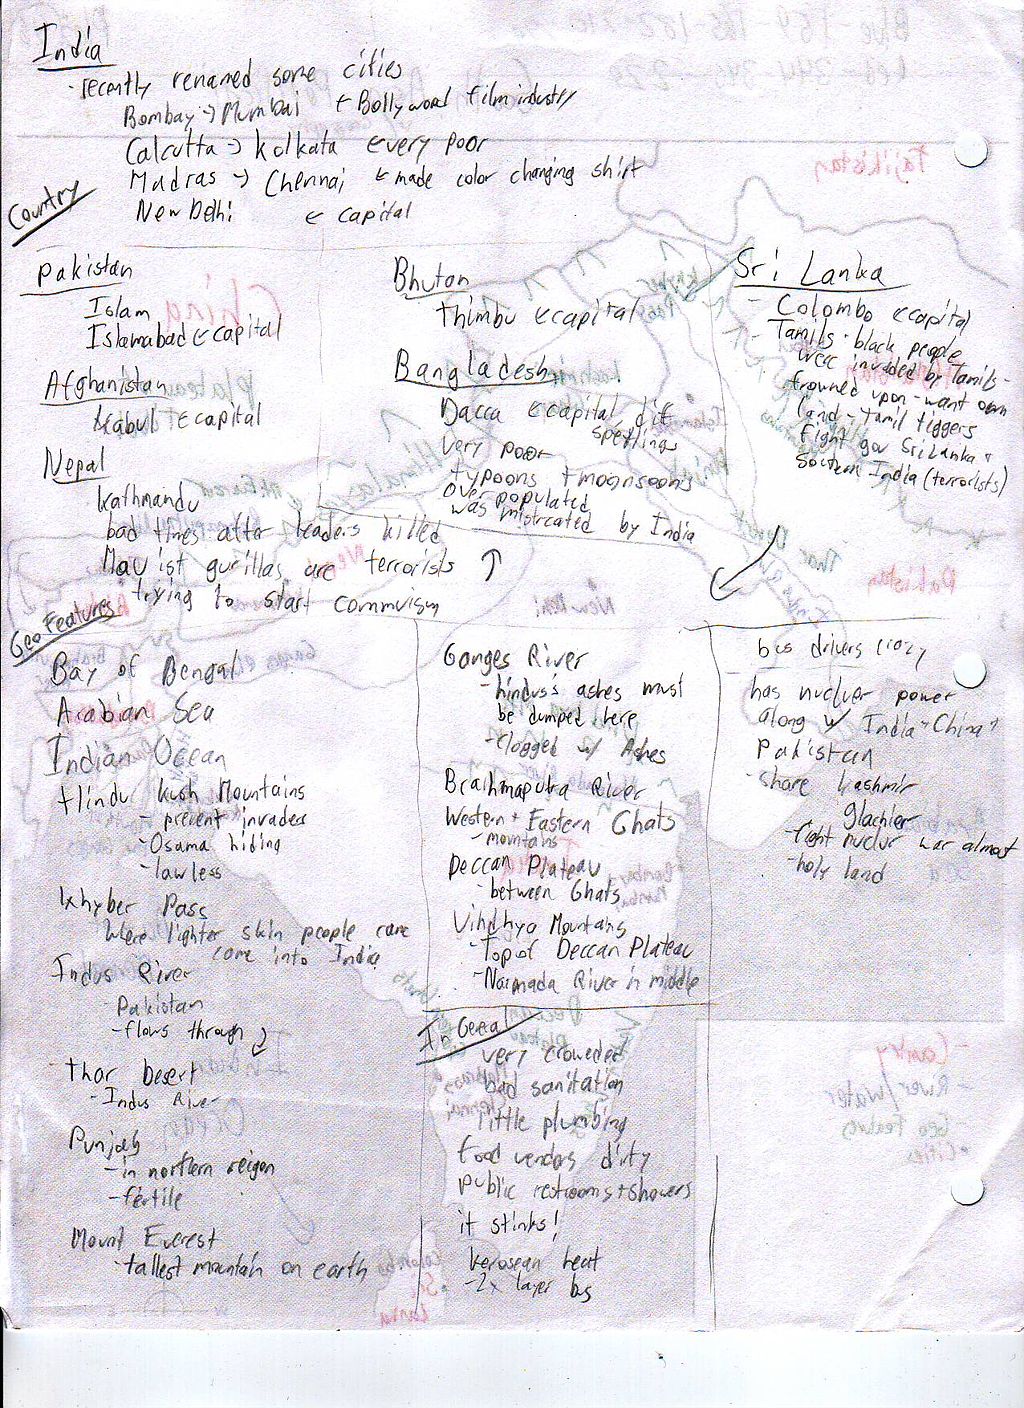 India
- recently renamed some cities
Bombay → Mumbai ← Bollywood film industry
Calcutta → Kolkata ← very poor
Madras → Chennai ← made color changing shirt
New Delhi ← capital
Country
Pakistan
Islam
Islamabad ← capital
Afghanistan
Kabul ← capital
Nepal
Kathmandu
bad times after leaders killed
Mauist gurillas are terrorists
trying to start commuism
Bhutan
Thimbu ← capital
Bangladesh
Dacca ← capital dif
spellings
very poor
typoons + moonsoons
over populated
was mistreated by India
Sri Lanka
- Colombo ← capital
- Tamils - black people
were invaded by Tamils -
frowned upon - want own
land - Tamil tiggers
fight gov Sri Lanka +
Southern India (terrorists)
Geo Features
Bay of Bengal
Arabian Sea
Indian Ocean
Hindu Kush Mountains
- prevent invaders
- Osama hiding
- lawless
Khyber Pass
Where lighter skin people came
come into India
Indus River
- Pakistan
- flows through
- Thar Desert
- Indus River
Punjab
- in northern reigon
- fertile
Mount Everest
- tallest mountain on earth
Ganges River
- hindus's ashes must
be dumped here
- clogged w/ Ashes
Brahmaputra River
Western + Eastern Ghats
- mountains
Deccan Plateau
- between Ghats
Vindhya Mountains
- Top of Deccan Plateau
- Narmada River in middle
In Geeral
very crowded
bad sanitation
little plumbing
food vendors dirty
public restrooms + showers
it stinks!
kerosean heat
- 2x layer bus
bus drivers crazy
- has nucluer power
along w/ India + China +
Pakistan
- share Kashmir
glachier
- fight nuclur war almost
- holy land
Tajikistan
China
Plateau
Himalayas
Khyber
Pass
New Delhi
Thar
Pakistan
Deccan
Plateau
Country
River/water
Geo features
Cities
Colombo
Sri
Lanka